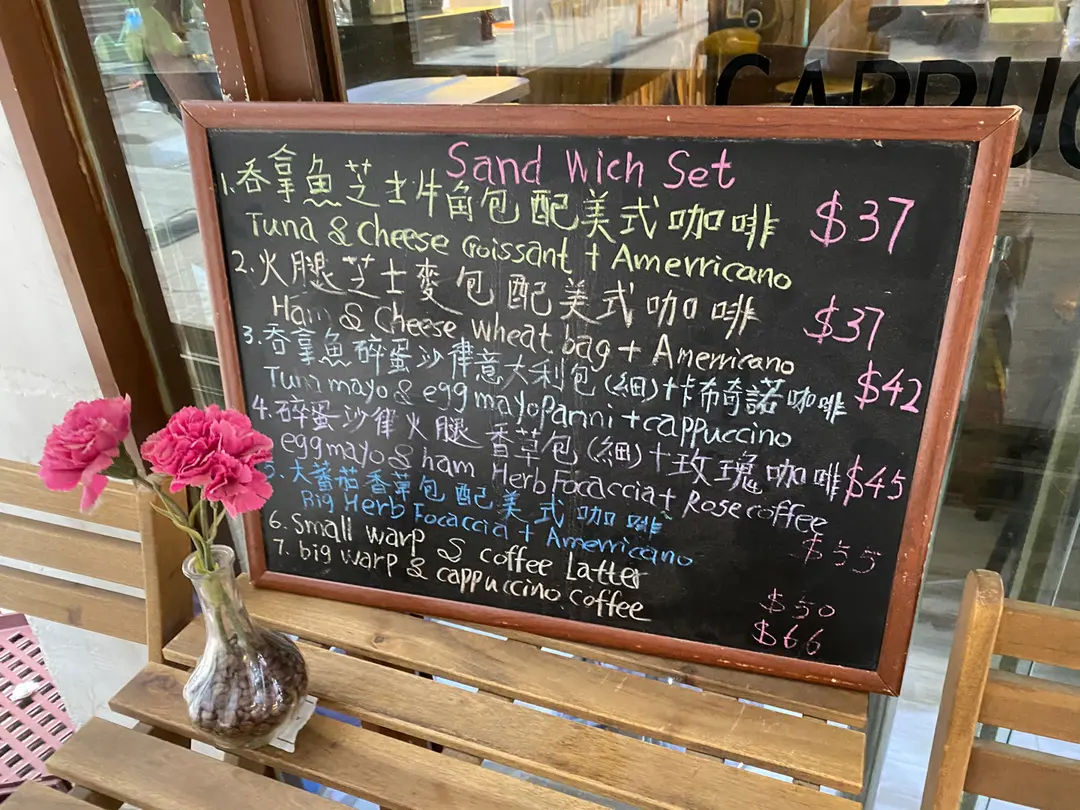 CAPPUC
Sand Wich Set
1. 吞拿魚芝士牛角包配美式咖啡 $37
Tuna & cheese Croissant + Amerricano
2. 火腿芝士麥包配美式咖啡 $37
Ham & cheese wheat bag + Amerricano
3. 吞拿魚碎蛋沙律意大利包(細)+卡布奇諾咖啡 $42
Tuna mayo & egg mayo Panni + cappuccino
4. 碎蛋沙律火腿香草包(細)+玫瑰咖啡 $45
egg mayo & ham Herb Focaccia + Rose coffee
5. 大蕃茄香草包配美式咖啡
Big Herb Focaccia + Amerricano $55
6. Small warp & coffee Latter $50
7. big warp & cappuccino coffee $66